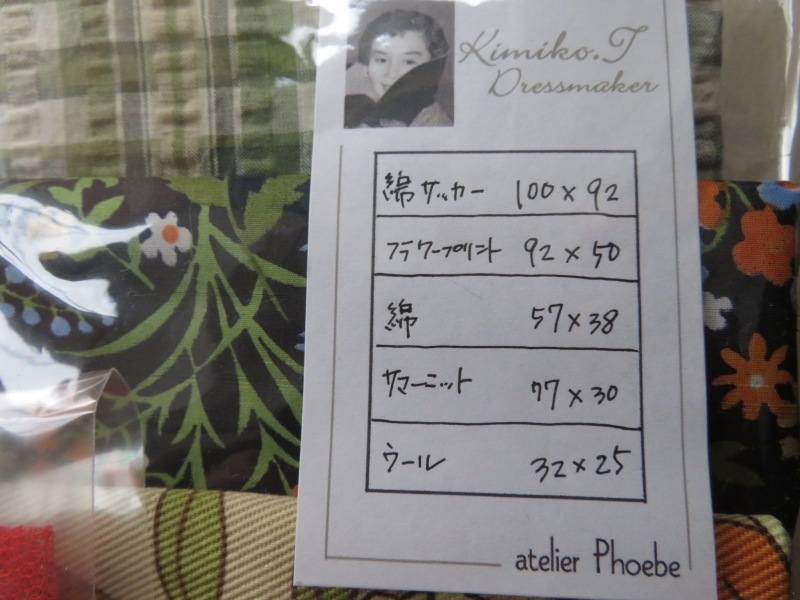 Kimiko.T
Dressmaker
綿サッカー 100×92
フラワープリント 92×50
綿 57×38
サマーニット 77×30
ウール 32×25
atelier Phoebe